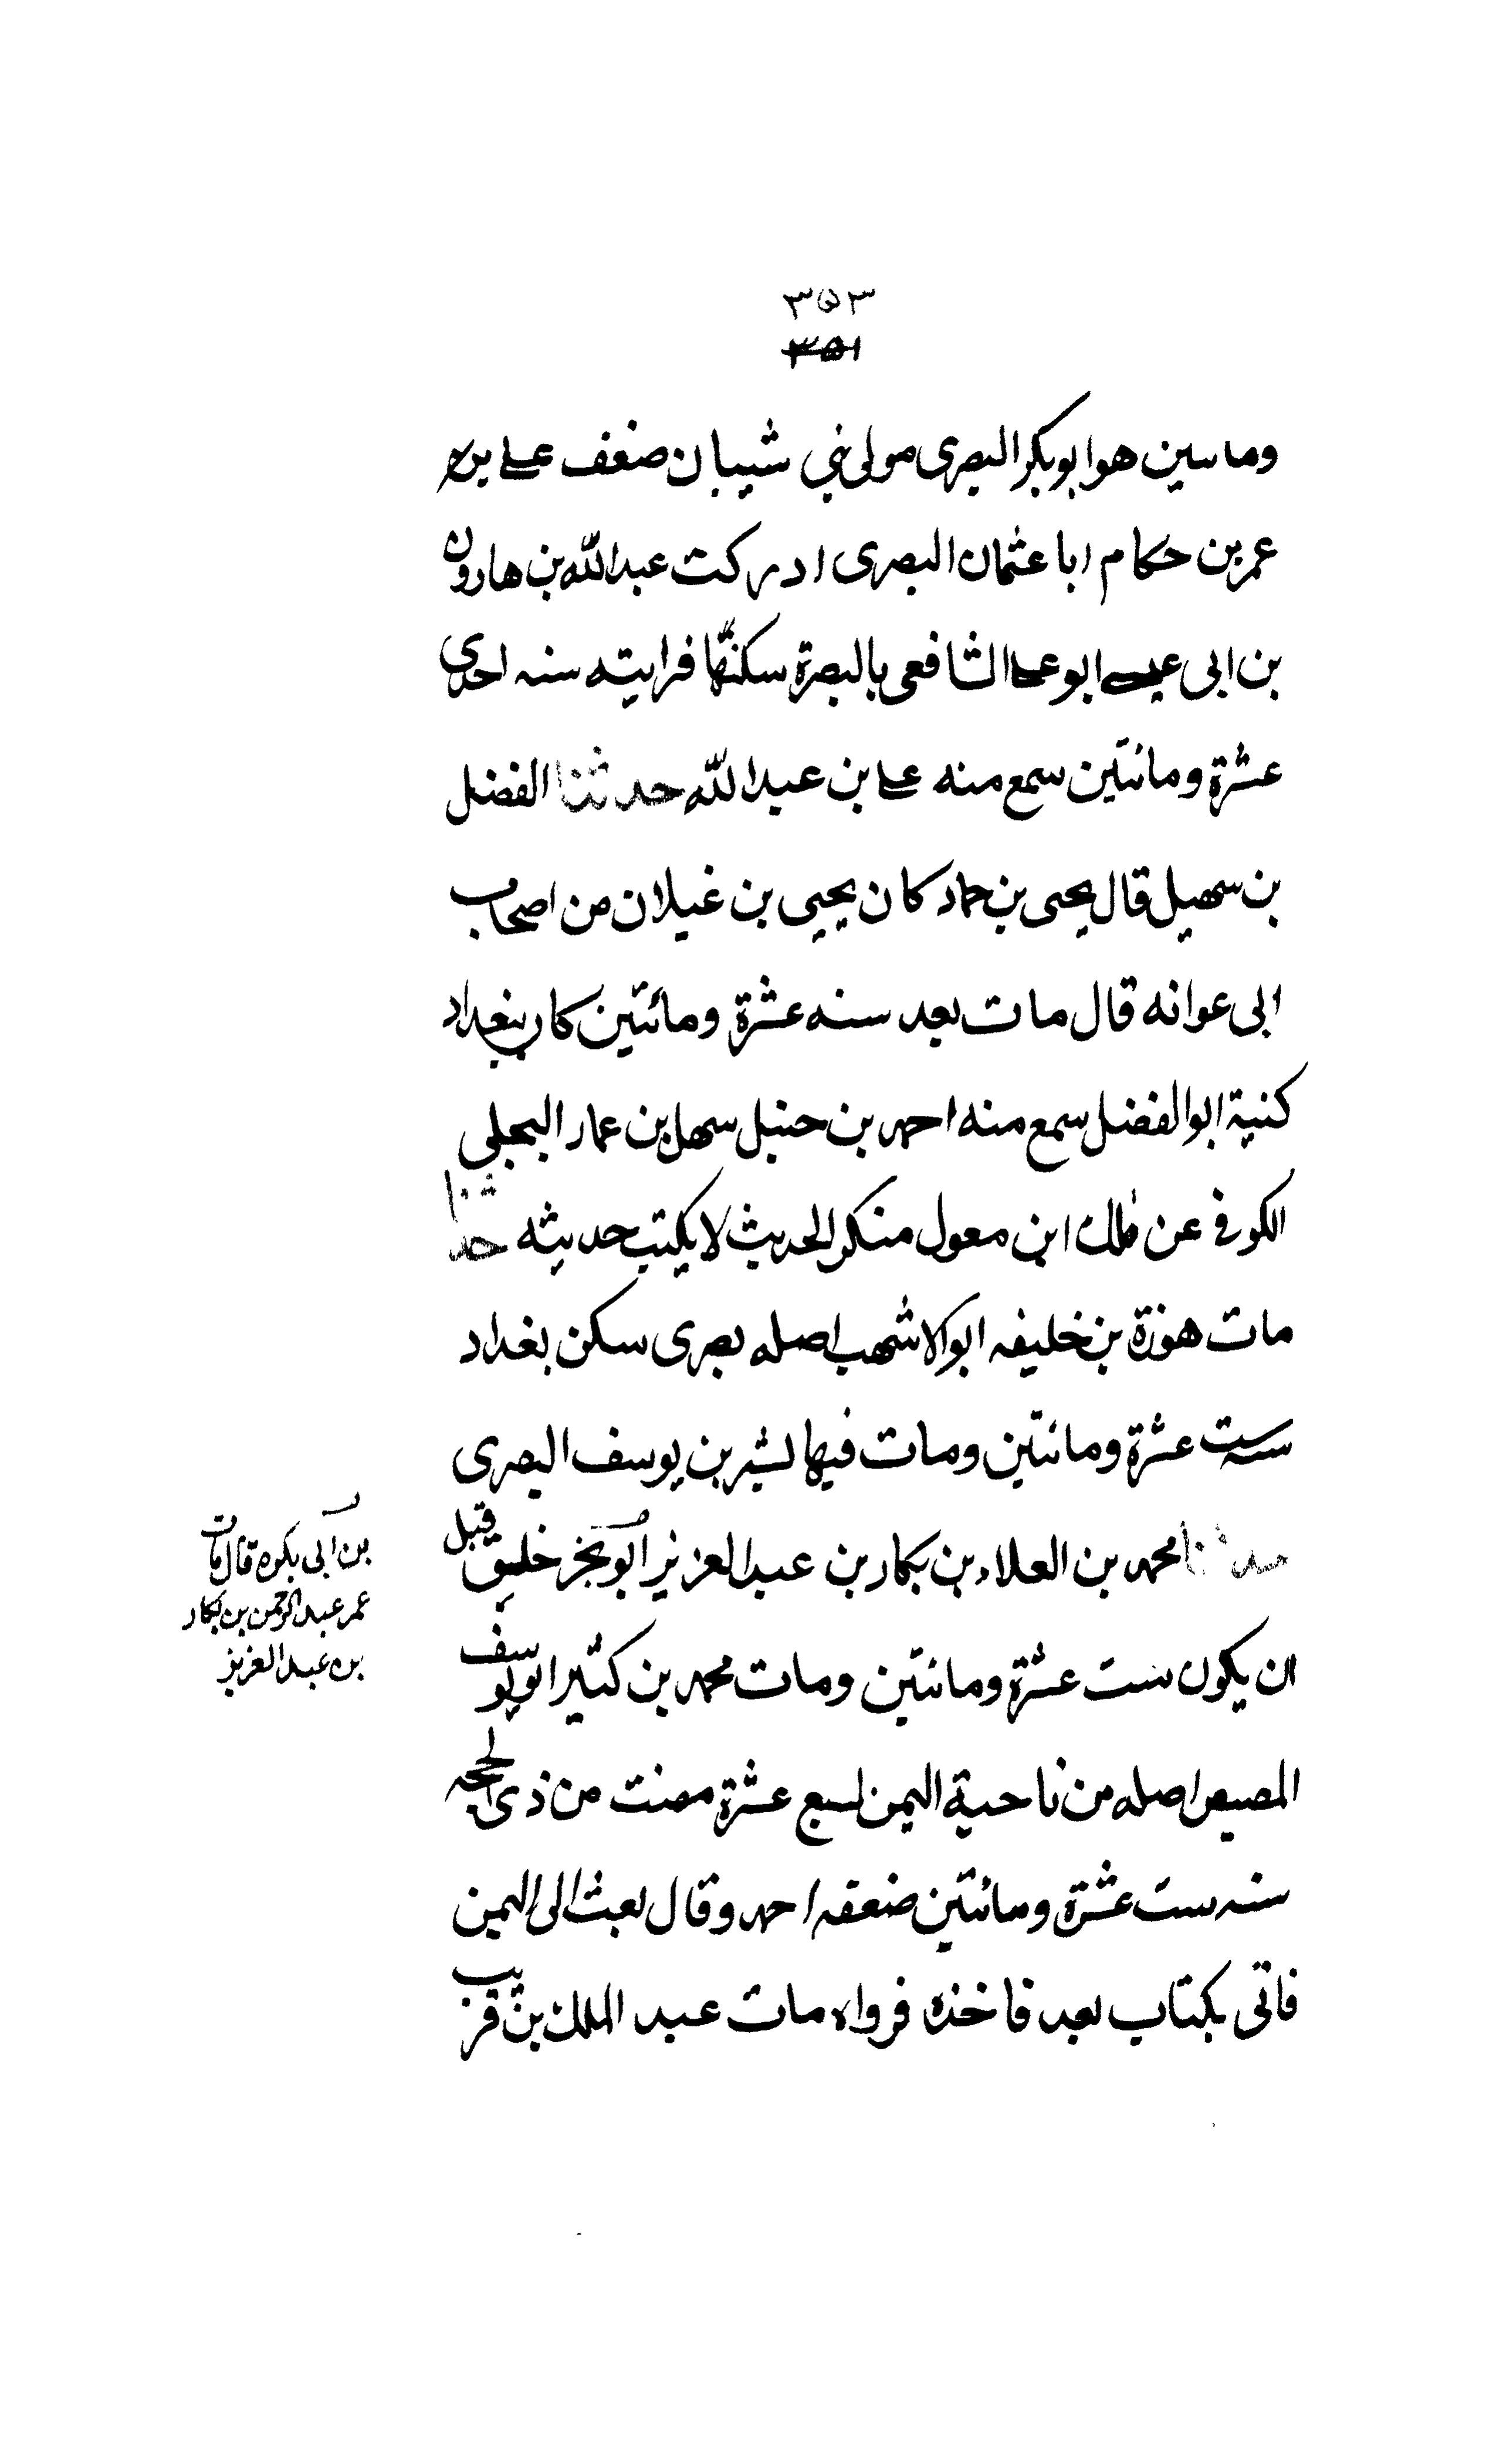 ٣٥٣
٣٥١
ومائتين هو ابو بكر البصرى مولى بني شيبان ضعف على بن
عمر بن حكام ابا عثمان البصرى ادركت عبد الله بن هارون
بن ابى عيسى ابو على الشافعى بالبصرة سكنها فرايته سنه احدى
عشرة ومائتين سمع منه على بن عبد الله حدثنا الفضل
بن سهيل قال يحيى بن حماد كان يحيى بن غيلان من اصحاب
ابى عوانه قال مات بعد سنه عشرة ومائتين كان ببغداد
كنية ابو الفضل سمع منه احمد بن حنبل سهل بن عمار البجلى
الكوفى عن مالك ابن معول منكر الحديث لا يكتب حديثه حدثنا
مات هوذة بن خليفه ابو الاشهب اصله بصرى سكن بغداد
ست عشرة ومائتين ومات فيها بشر بن يوسف البصرى
حدثنا محمد بن العلاء بن بكار بن عبد العزيز ابو بحر خليق قبل
ان يكون ست عشرة ومائتين ومات محمد بن كثير ابو يوسف
المصيص اصله من ناحية اليمن لسبع عشرة مضت من ذى الحجه
سنه ست عشرة ومائتين ضعفه احمد وقال بعث الى اليمن
فاتى بكتاب بعد فاخذه فرواه مات عبد الملك بن قريب
بن ابى بكره قال مات
عمر عبد الرحمن بن بكار
بن عبد العزيز